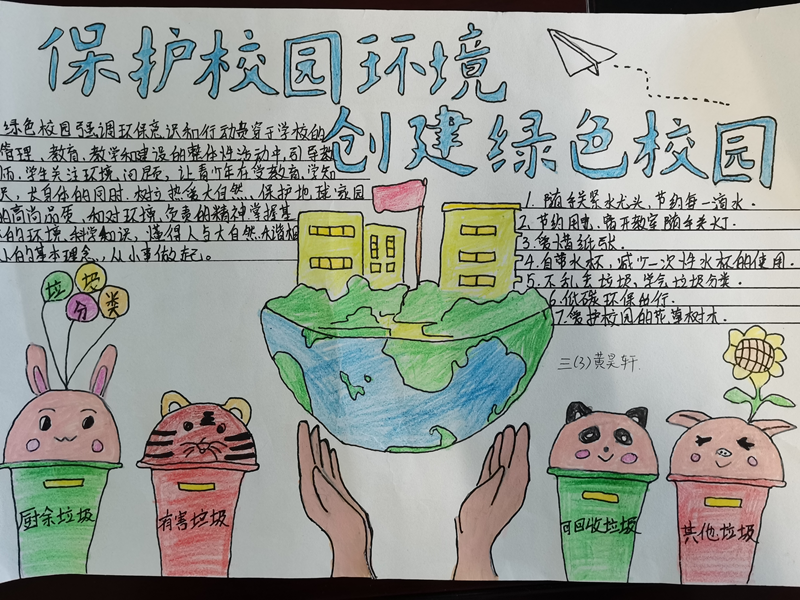 保护校园环境
创建绿色校园
绿色校园强调环保意识和行动贯穿于学校的
管理、教育、教学和建设的整体性活动中,引导教
师、学生关注环境问题,让青少年在学教育、学知
识、长身体的同时,树立热爱大自然、保护地球家园
的高尚品质和对环境负责的精神掌握基
的环境科学知识,懂得人与大自然和谐相
的基本理念,从小事做起。
1. 随手关紧水龙头,节约每一滴水.
2. 节约用电,离开教室随手关灯.
3. 爱惜纸张.
4. 自带水杯,减少一次性水杯的使用.
5. 不乱丢垃圾,学会垃圾分类.
6. 低碳环保出行.
7. 爱护校园的花草树木.
三(3)黄昊轩.
垃圾
分类
厨余垃圾
有害垃圾
可回收垃圾
其他垃圾